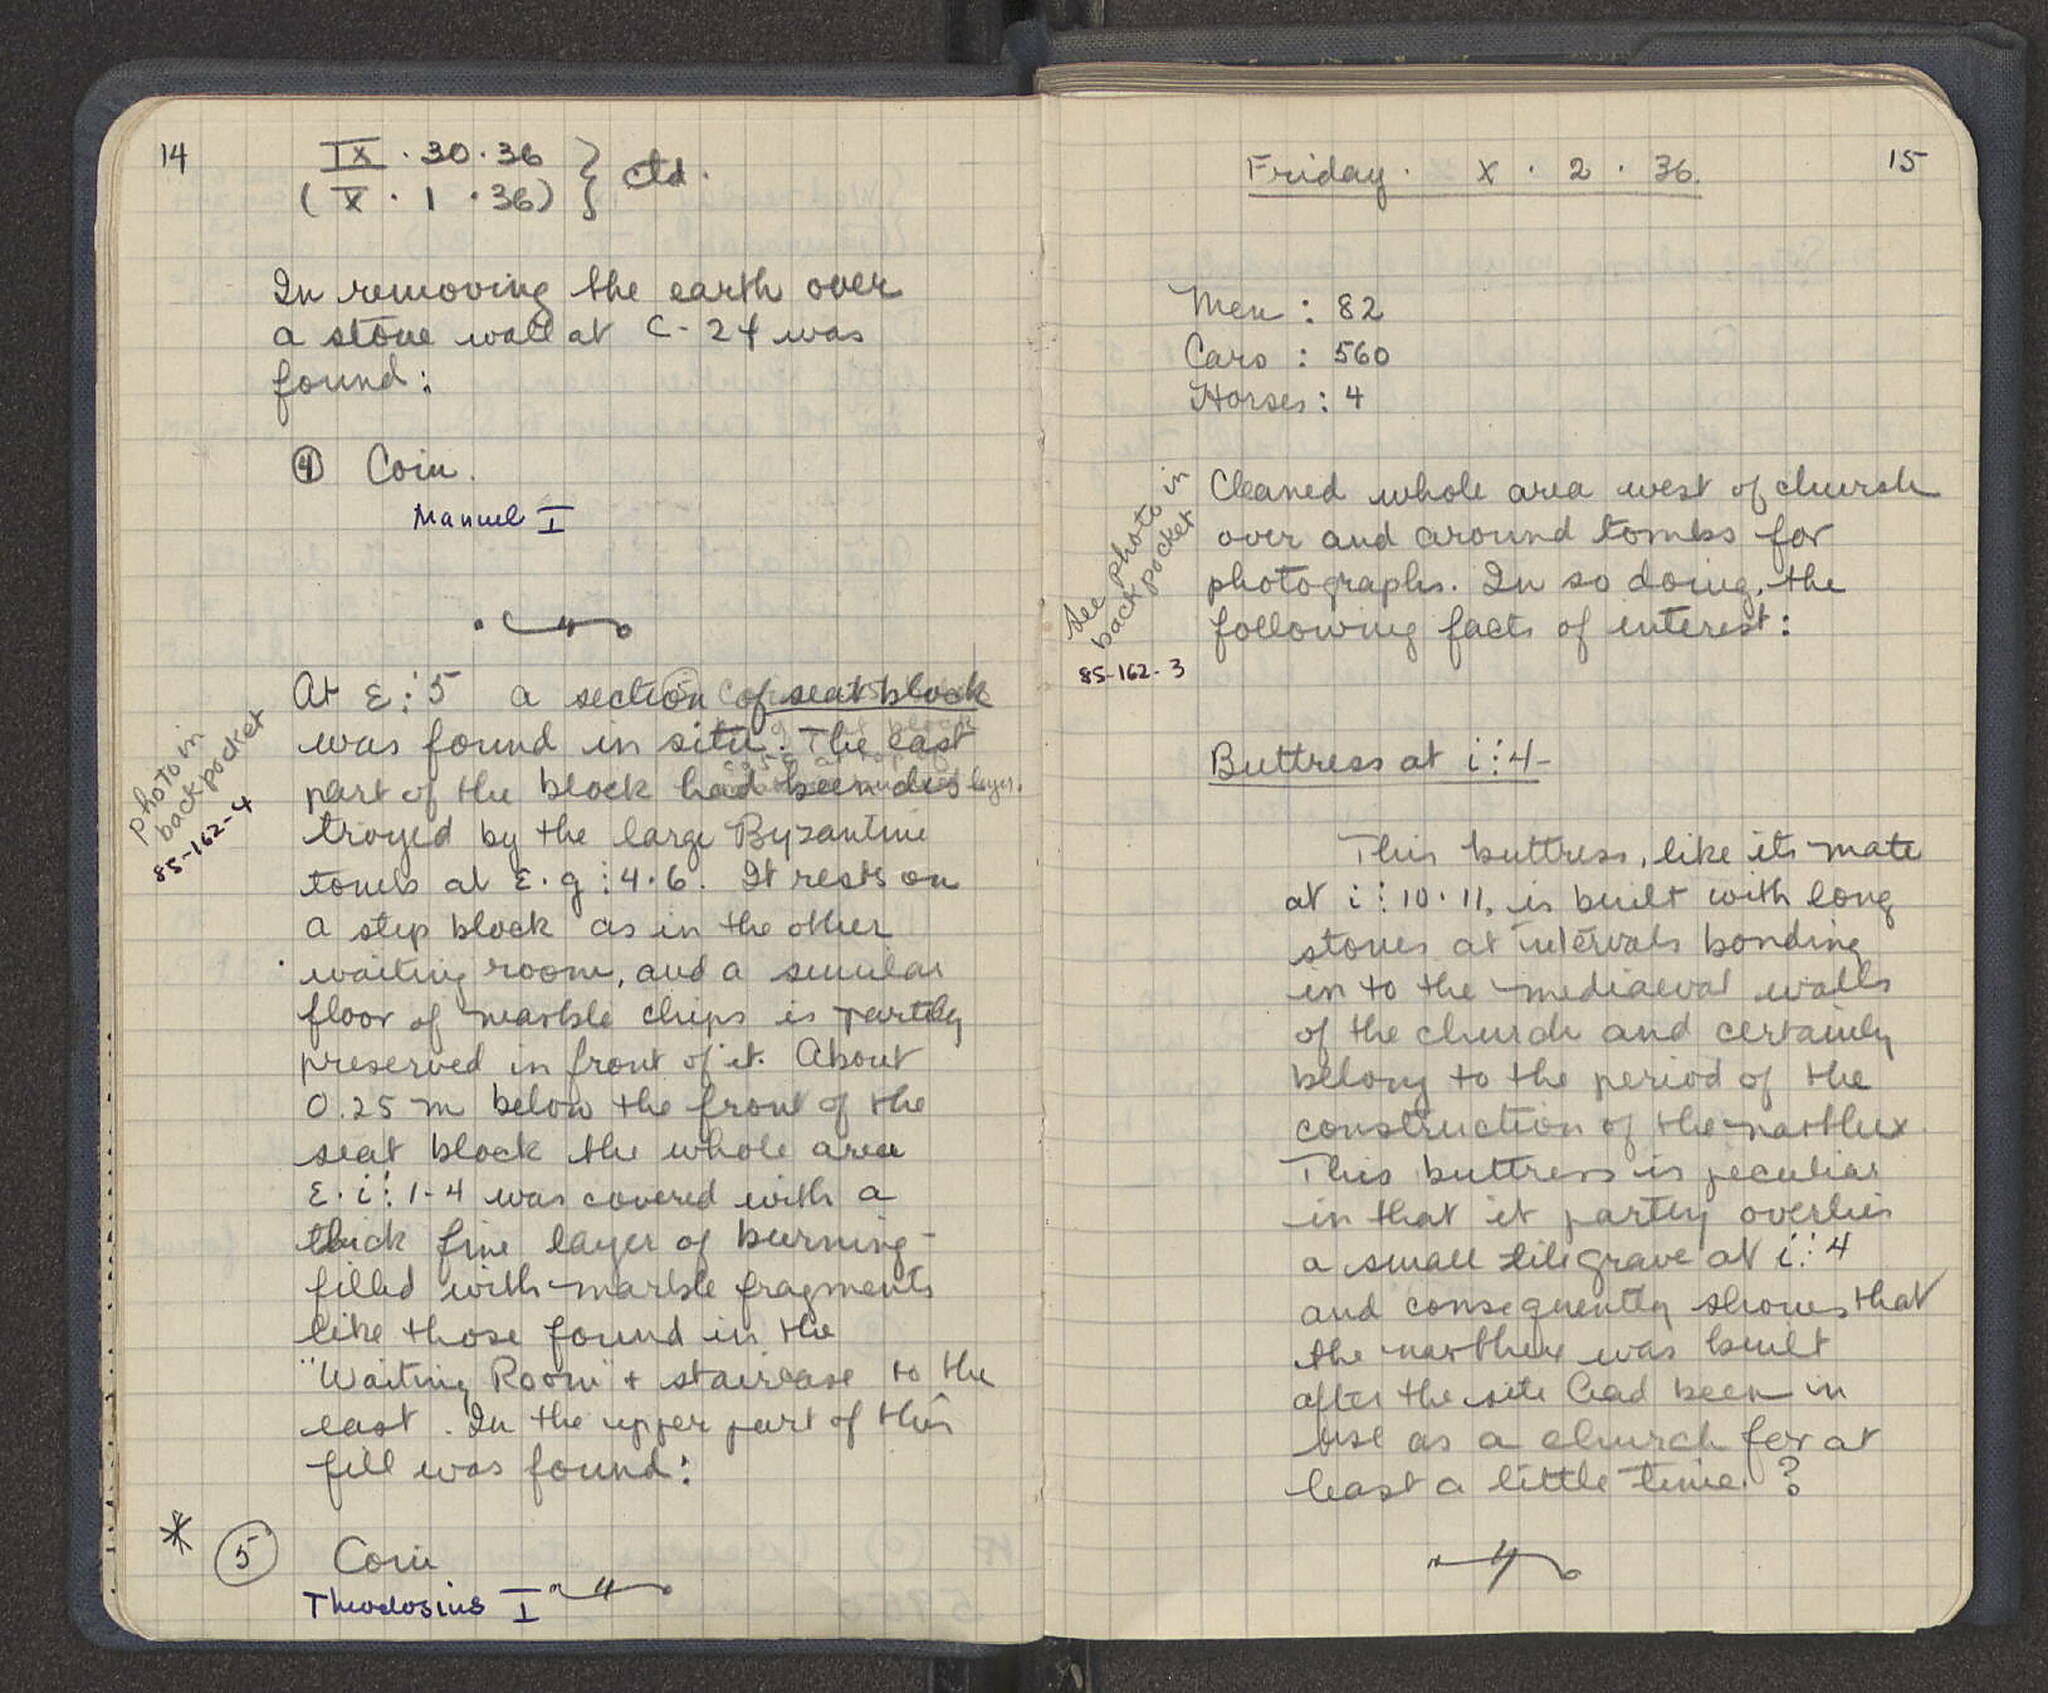 14
IX . 30 . 36
(X . 1 . 36)
} ctd.
In removing the earth over
a stone wall at C-24 was
found:
④ Coin.
Manuel I
At E:5 a section of seat block
was found in situ. The east
part of the block had been des
troyed by the large Byzantine
tomb at E.g:4.6. It rests on
a step block as in the other
waiting room, and a similar
floor of marble chips is partly
preserved in front of it. About
0.25 m below the front of the
seat block the whole area
E.i:1-4 was covered with a
thick fine layer of burning -
filled with marble fragments
like those found in the
"Waiting Room" + staircase to the
east. In the upper part of this
fill was found:
* ⑤ Coin
Theodosius I
photo in
back pocket
85-162-4
layer.
15
Friday. X . 2 . 36.
Men : 82
Cars : 560
Horses : 4
Cleaned whole area west of church
over and around tombs for
photographs. In so doing, the
following facts of interest:
see photo in
back pocket
85-162-3
Buttress at i:4-
This buttress, like its mate
at i:10.11, is built with long
stones at intervals bonding
in to the mediaeval walls
of the church and certainly
belong to the period of the
construction of the narthex
This buttress is peculiar
in that it partly overlies
a small tile grave at i:4
and consequently shows that
the narthex was built
after the site had been in
use as a church for at
least a little time. ?